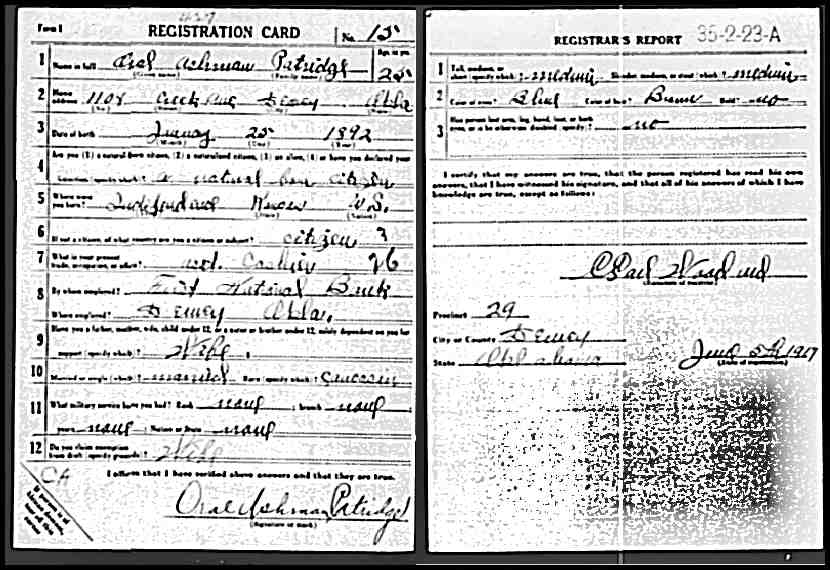 Form 1
REGISTRATION CARD No. 15
1 Name in full Oral Ashman Patridge Age, in yrs. 25
(Given name) (Family name)
2 Home address 1108 Creek Ave Dewey Okla
(No.) (Street) (City) (State)
3 Date of birth January 25 1892
(Month) (Day) (Year)
4 Are you (1) a natural-born citizen, (2) a naturalized citizen, (3) an alien, (4) or have you declared your
intention (specify which)? a natural born citizen
5 Where were you born? U.S.
(Town) (State) (Nation)
6 If not a citizen, of what country are you a citizen or subject? citizen
7 What is your present trade, occupation, or office? asst. Cashier 26
8 By whom employed? First National Bank
Where employed? Dewey Okla.
9 Have you a father, mother, wife, child under 12, or a sister or brother under 12, solely dependent on you for
support (specify which)? Wife
10 Married or single (which)? married Race (specify which)? Caucasian
11 What military service have you had? Rank none ; branch none
years none ; Nation or State none
12 Do you claim exemption from draft (specify grounds)? Wife
I affirm that I have verified above answers and that they are true.
Oral Ashman Patridge
(Signature or mark)
REGISTRAR'S REPORT 35-2-23-A
1 Tall, medium, or short (specify which)? medium Slender, medium, or stout (which)? medium
2 Color of eyes? Blue Color of hair? Brown Bald? no
3 Has person lost arm, leg, hand, foot, or both eyes, or is he otherwise disabled (specify)? no
I certify that my answers are true, that the person registered has read his own
answers, that I have witnessed his signature, and that all of his answers of which I have
knowledge are true, except as follows:
(Signature of registrar)
Precinct 29
City or County Dewey
State Oklahoma June 5th 1917
(Date of registration)